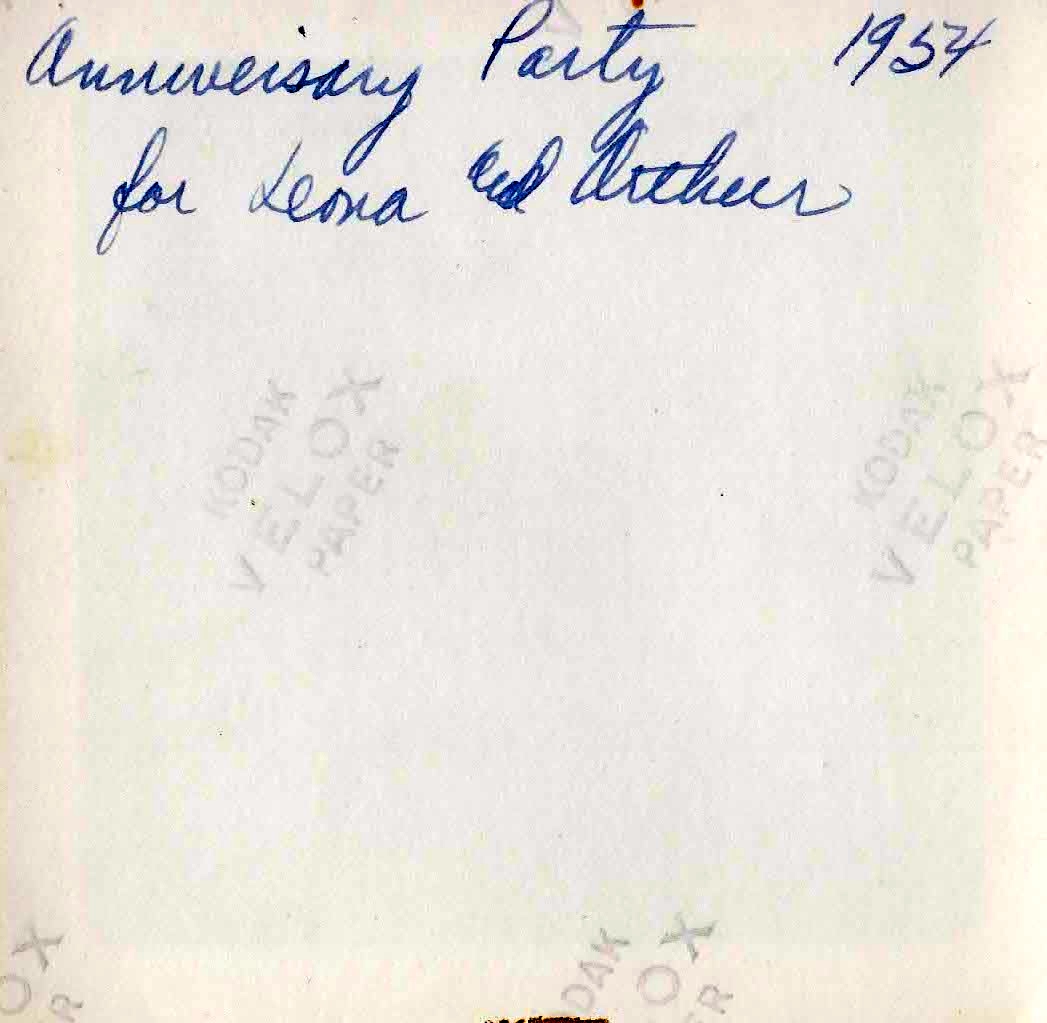 Anniversary Party 1954
for Leona and Arthur
KODAK
VELOX
PAPER
KODAK
VELOX
PAPER
OX
R
DAK
OX
R